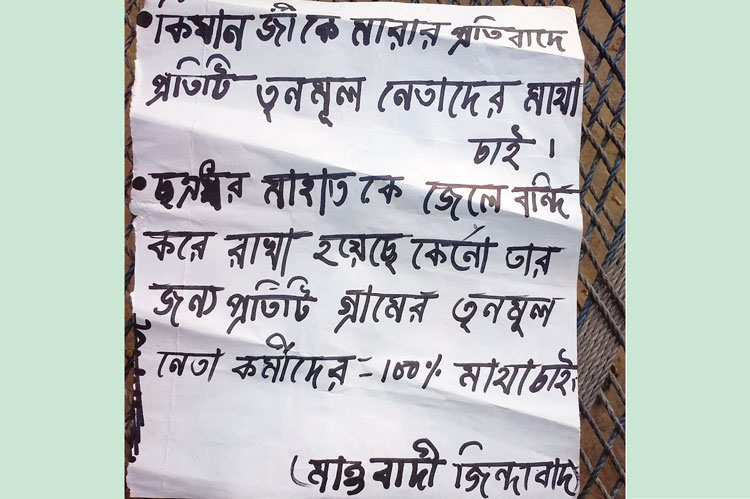 • কিষান জী কে মারার প্রতিবাদে
প্রতিটি তৃনমূল নেতাদের মাথা
চাই ।
• ছত্রধর মাহাত কে জেলে বন্দি
করে রাখা হয়েছে কেনো তার
জন্য প্রতিটি গ্রামের তৃনমুল
নেতা কর্মীদের = ১০০% মাথা চাই।
(মাওবাদী জিন্দাবাদ)